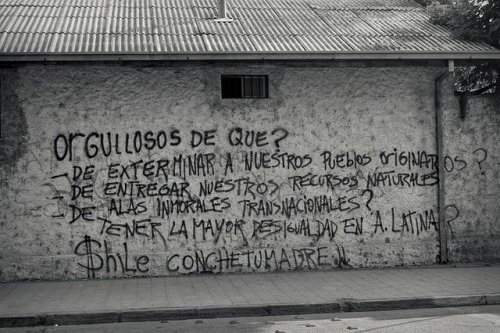 ORGULLOSOS DE QUE?
- DE EXTERMINAR A NUESTROS PUEBLOS ORIGINARIOS?
- DE ENTREGAR NUESTROS RECURSOS NATURALES
- DE ALAS INMORALES TRANSNACIONALES?
TENER LA MAYOR DESIGUALDAD EN A. LATINA?
$hile CONCHETUMADRE !!